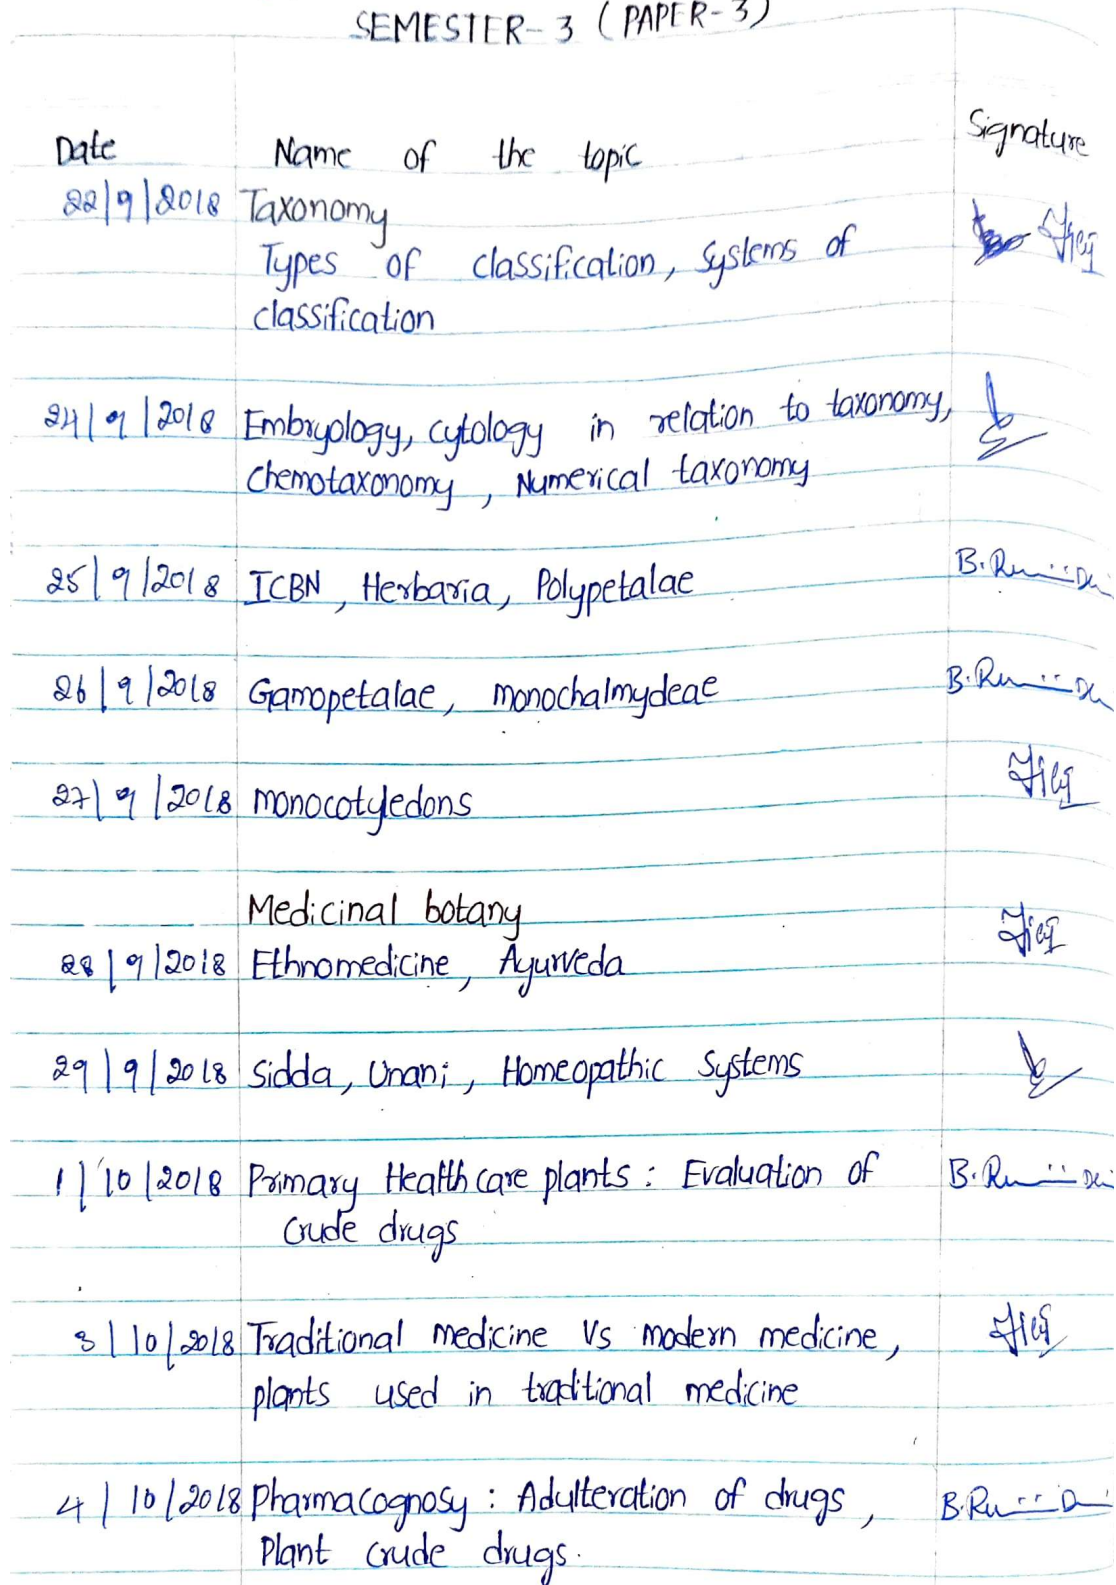 SEMESTER- 3 (PAPER-3)
Date Name of the topic Signature
22/9/2018 Taxonomy
Types of classification, Systems of
classification
24/9/2018 Embryology, cytology in relation to taxonomy,
Chemotaxonomy, Numerical taxonomy
25/9/2018 ICBN, Herbaria, Polypetalae
26/9/2018 Gamopetalae, monochalmydeae
27/9/2018 monocotyledons
Medicinal botany
28/9/2018 Ethnomedicine, Ayurveda
29/9/2018 Sidda, Unani, Homeopathic Systems
1/10/2018 Primary Health care plants: Evaluation of B.
Crude drugs
3/10/2018 Traditional medicine Vs modern medicine,
plants used in traditional medicine
4/10/2018 Pharmacognosy: Adulteration of drugs,
Plant crude drugs.